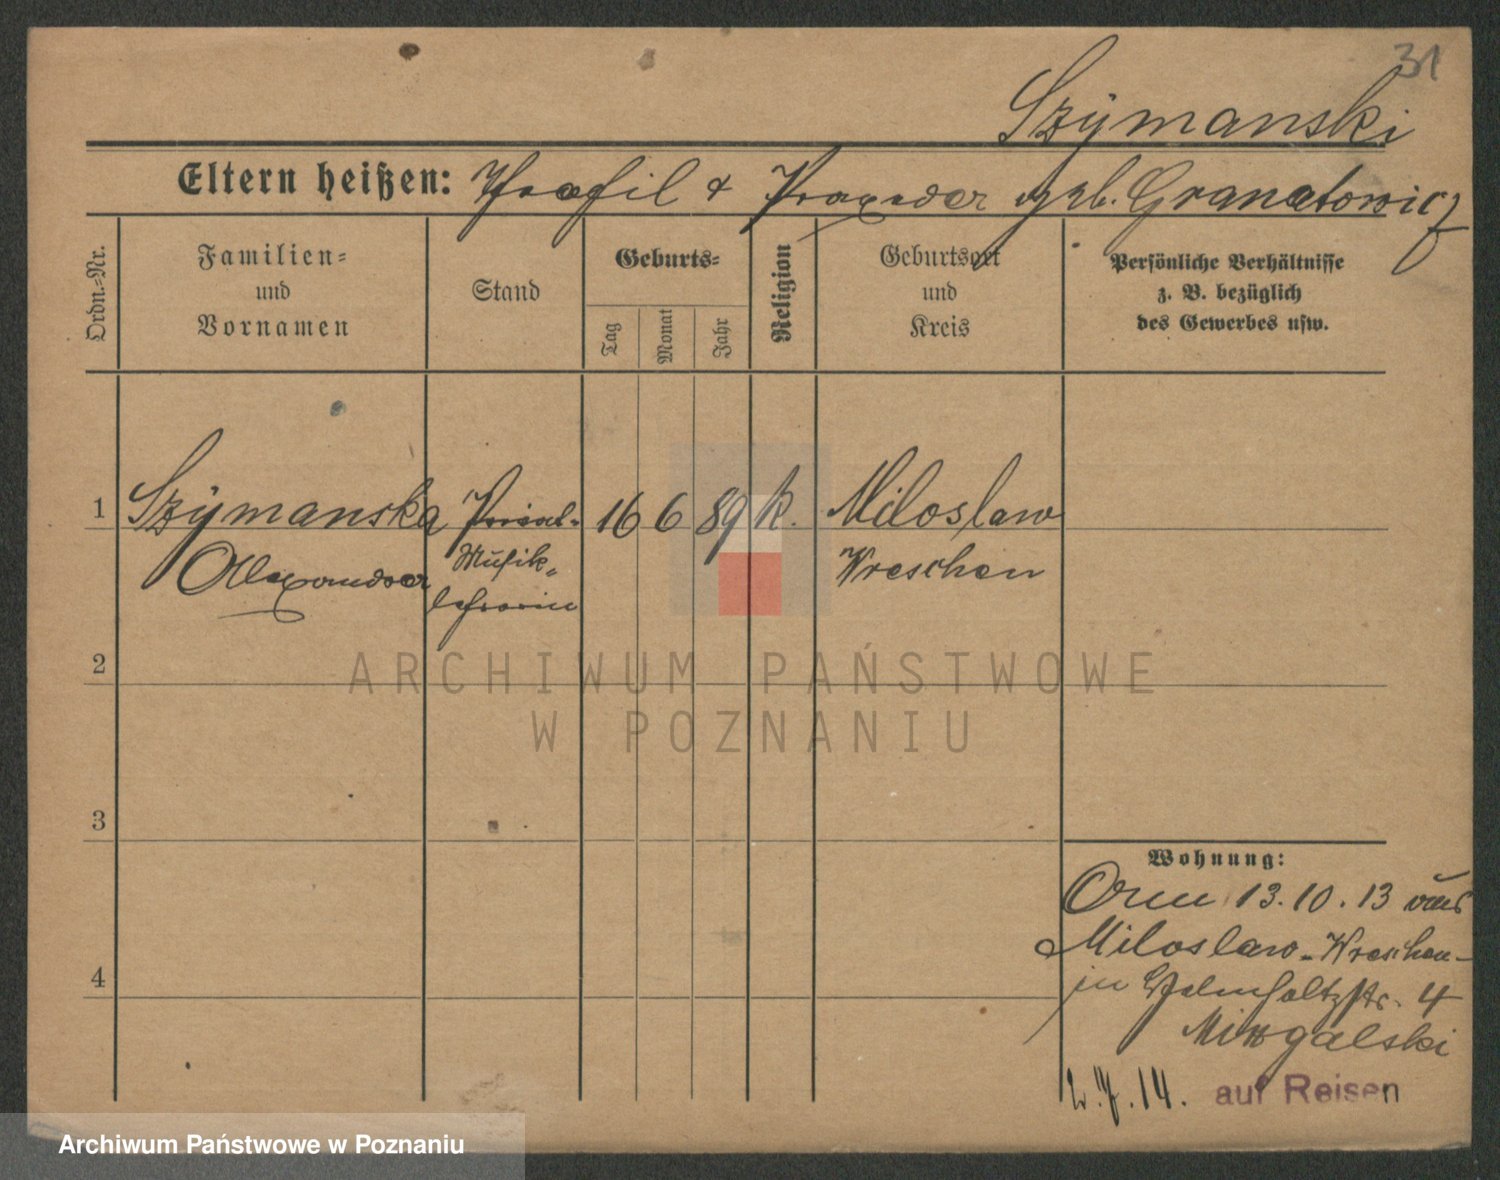 31
Szymanski
Eltern heißen: Theofil & Praxeda geb. Granatowicz
Ordn.-Nr.
Familien-
und
Vornamen
Stand
Geburts-
Tag
Monat
Jahr
Religion
Geburtsort
und
Kreis
Persönliche Verhältnisse
z. B. bezüglich
des Gewerbes usw.
1 Szymanska Privat- 16 6 89 k. Miloslaw
Alexandra Musik- Wreschen
lehrerin
2
3
4
Wohnung:
Am 13.10.13 aus
Miloslaw-Wreschen
in Helmholtzstr. 4
2.7.14. auf Reisen
ARCHIWUM PAŃSTWOWE
W POZNANIU
Archiwum Państwowe w Poznaniu